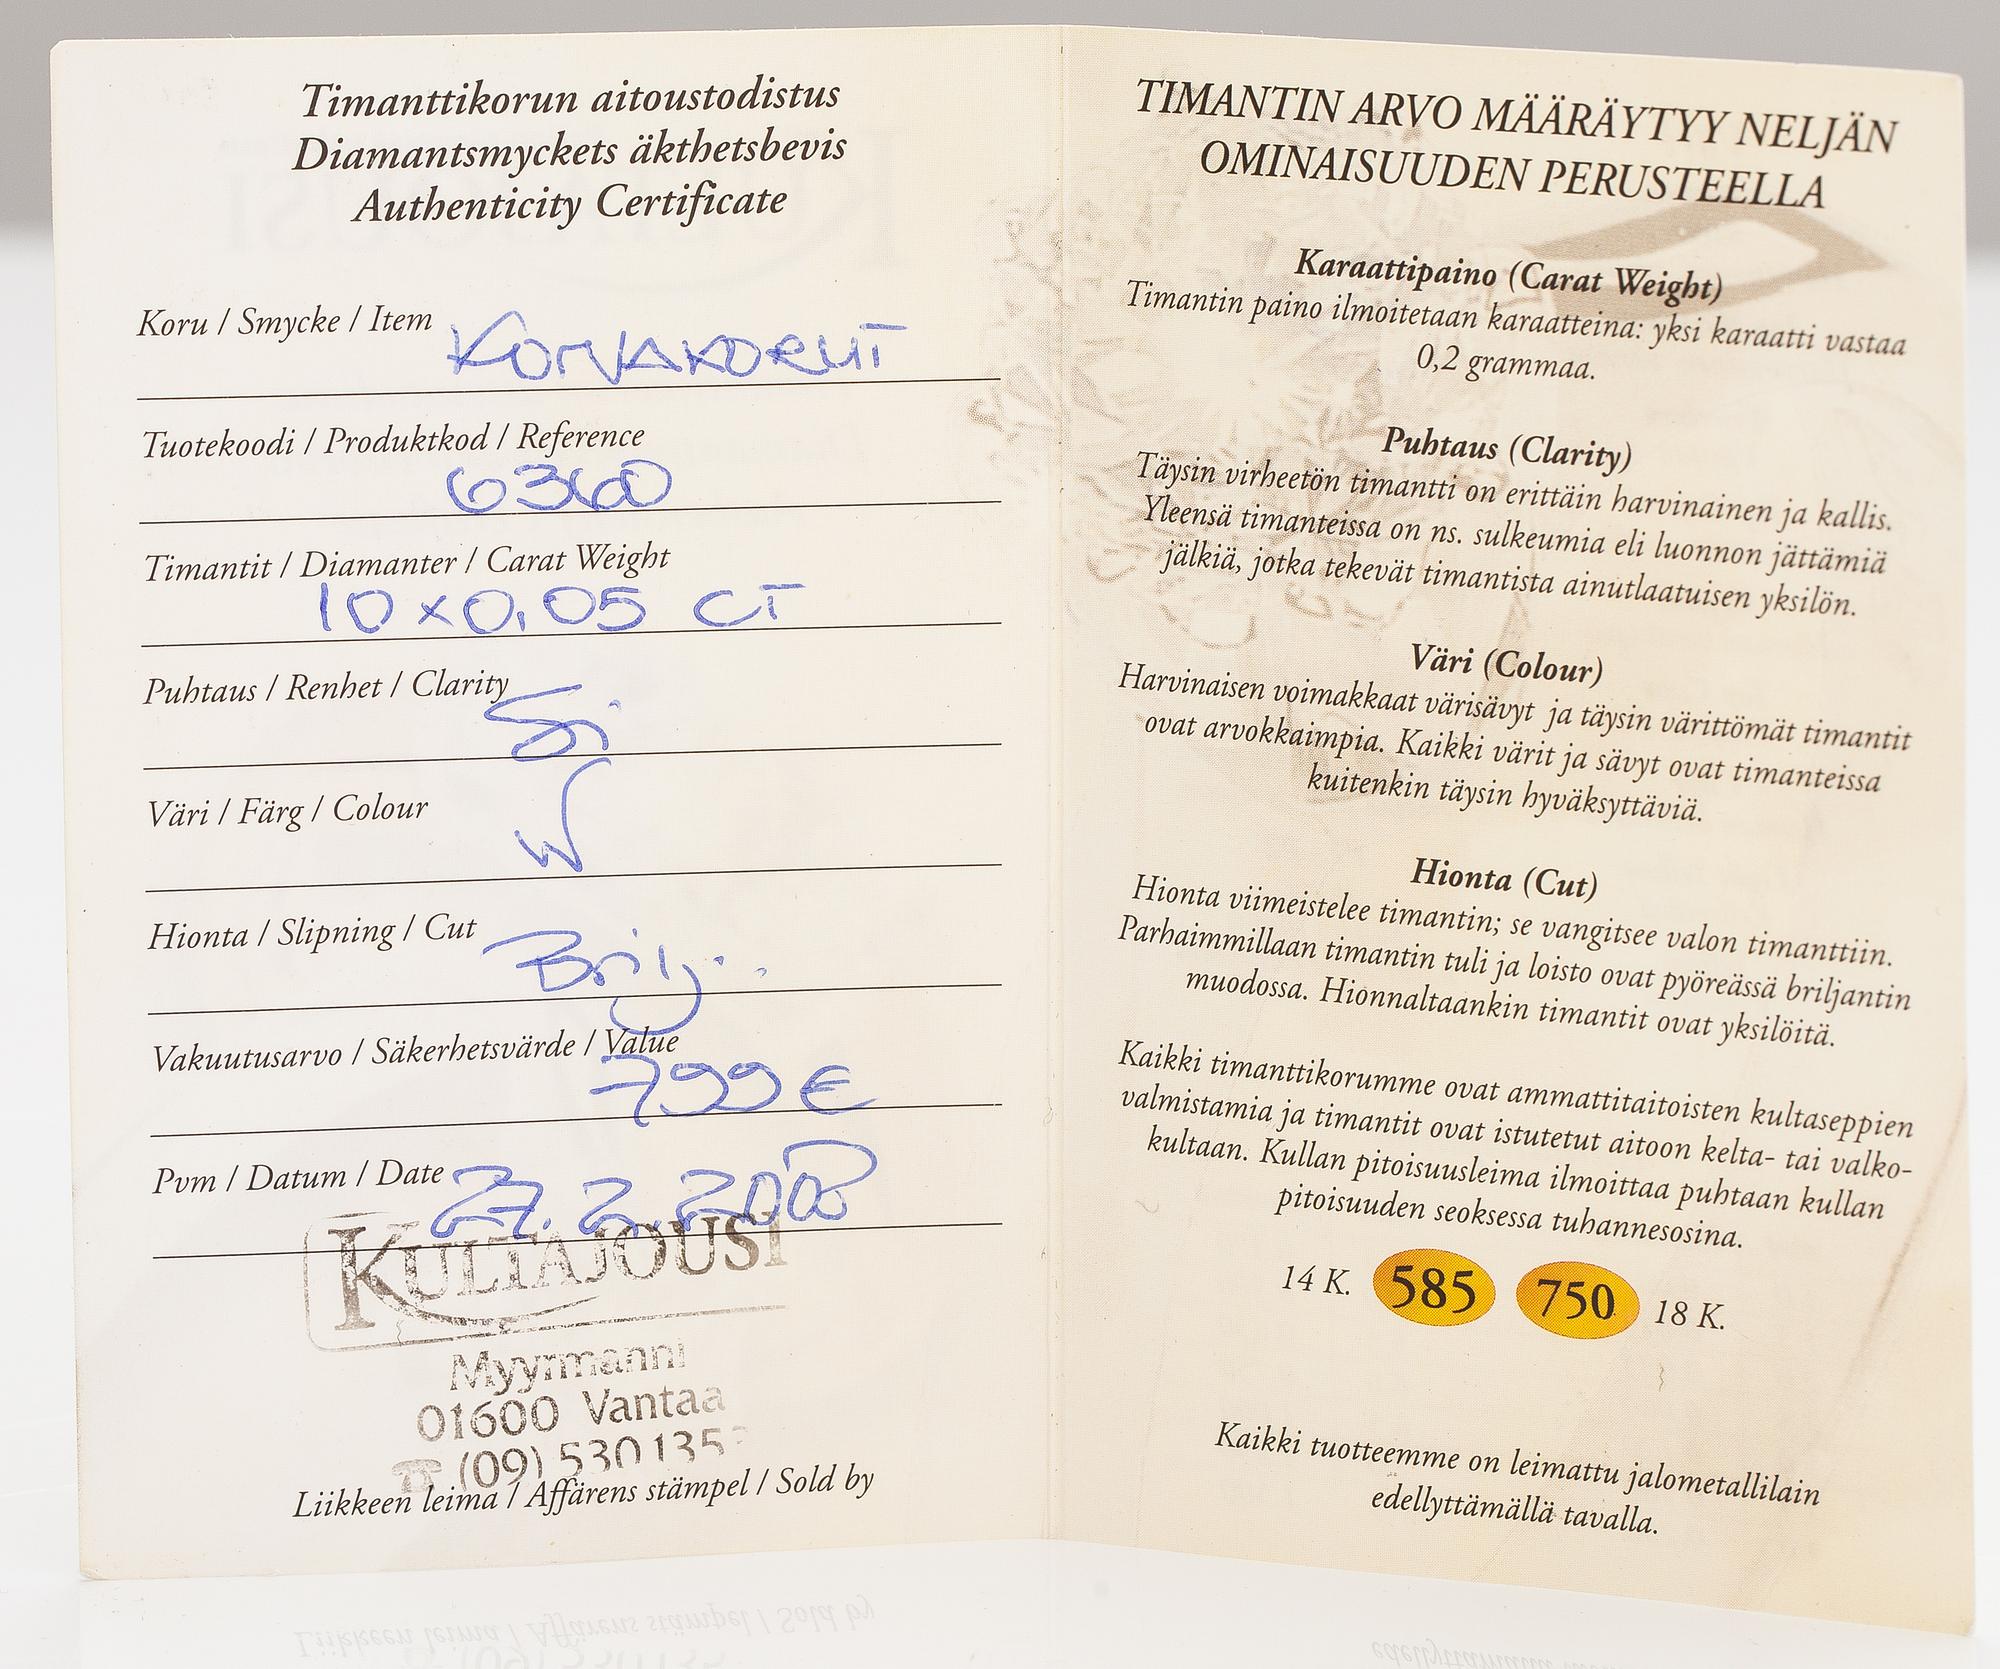 Timanttikorun aitoustodistus
Diamantsmyckets äkthetsbevis
Authenticity Certificate
Koru / Smycke / Item
KORVAKORUT
Tuotekoodi / Produktkod / Reference
6360
Timantit / Diamanter / Carat Weight
10 x 0,05 CT
Puhtaus / Renhet / Clarity
Si
Väri / Färg / Colour
W
Hionta / Slipning / Cut
Brilj..
Vakuutusarvo / Säkerhetsvärde / Value
799 €
Pvm / Datum / Date
27. 2. 2008
KULTAJOUSI
Myyrmanni
01600 Vantaa
(09) 530 135
Liikkeen leima / Affärens stämpel / Sold by
TIMANTIN ARVO MÄÄRÄYTYY NELJÄN
OMINAISUUDEN PERUSTEELLA
Karaattipaino (Carat Weight)
Timantin paino ilmoitetaan karaatteina: yksi karaatti vastaa
0,2 grammaa.
Puhtaus (Clarity)
Täysin virheetön timantti on erittäin harvinainen ja kallis.
Yleensä timanteissa on ns. sulkeumia eli luonnon jättämiä
jälkiä, jotka tekevät timantista ainutlaatuisen yksilön.
Väri (Colour)
Harvinaisen voimakkaat värisävyt ja täysin värittömät timantit
ovat arvokkaimpia. Kaikki värit ja sävyt ovat timanteissa
kuitenkin täysin hyväksyttäviä.
Hionta (Cut)
Hionta viimeistelee timantin; se vangitsee valon timanttiin.
Parhaimmillaan timantin tuli ja loisto ovat pyöreässä briljantin
muodossa. Hionnaltaankin timantit ovat yksilöitä.
Kaikki timanttikorumme ovat ammattitaitoisten kultaseppien
valmistamia ja timantit ovat istutetut aitoon kelta- tai valko-
kultaan. Kullan pitoisuusleima ilmoittaa puhtaan kullan
pitoisuuden seoksessa tuhannesosina.
14 K. 585 750 18 K.
Kaikki tuotteemme on leimattu jalometallilain
edellyttämällä tavalla.